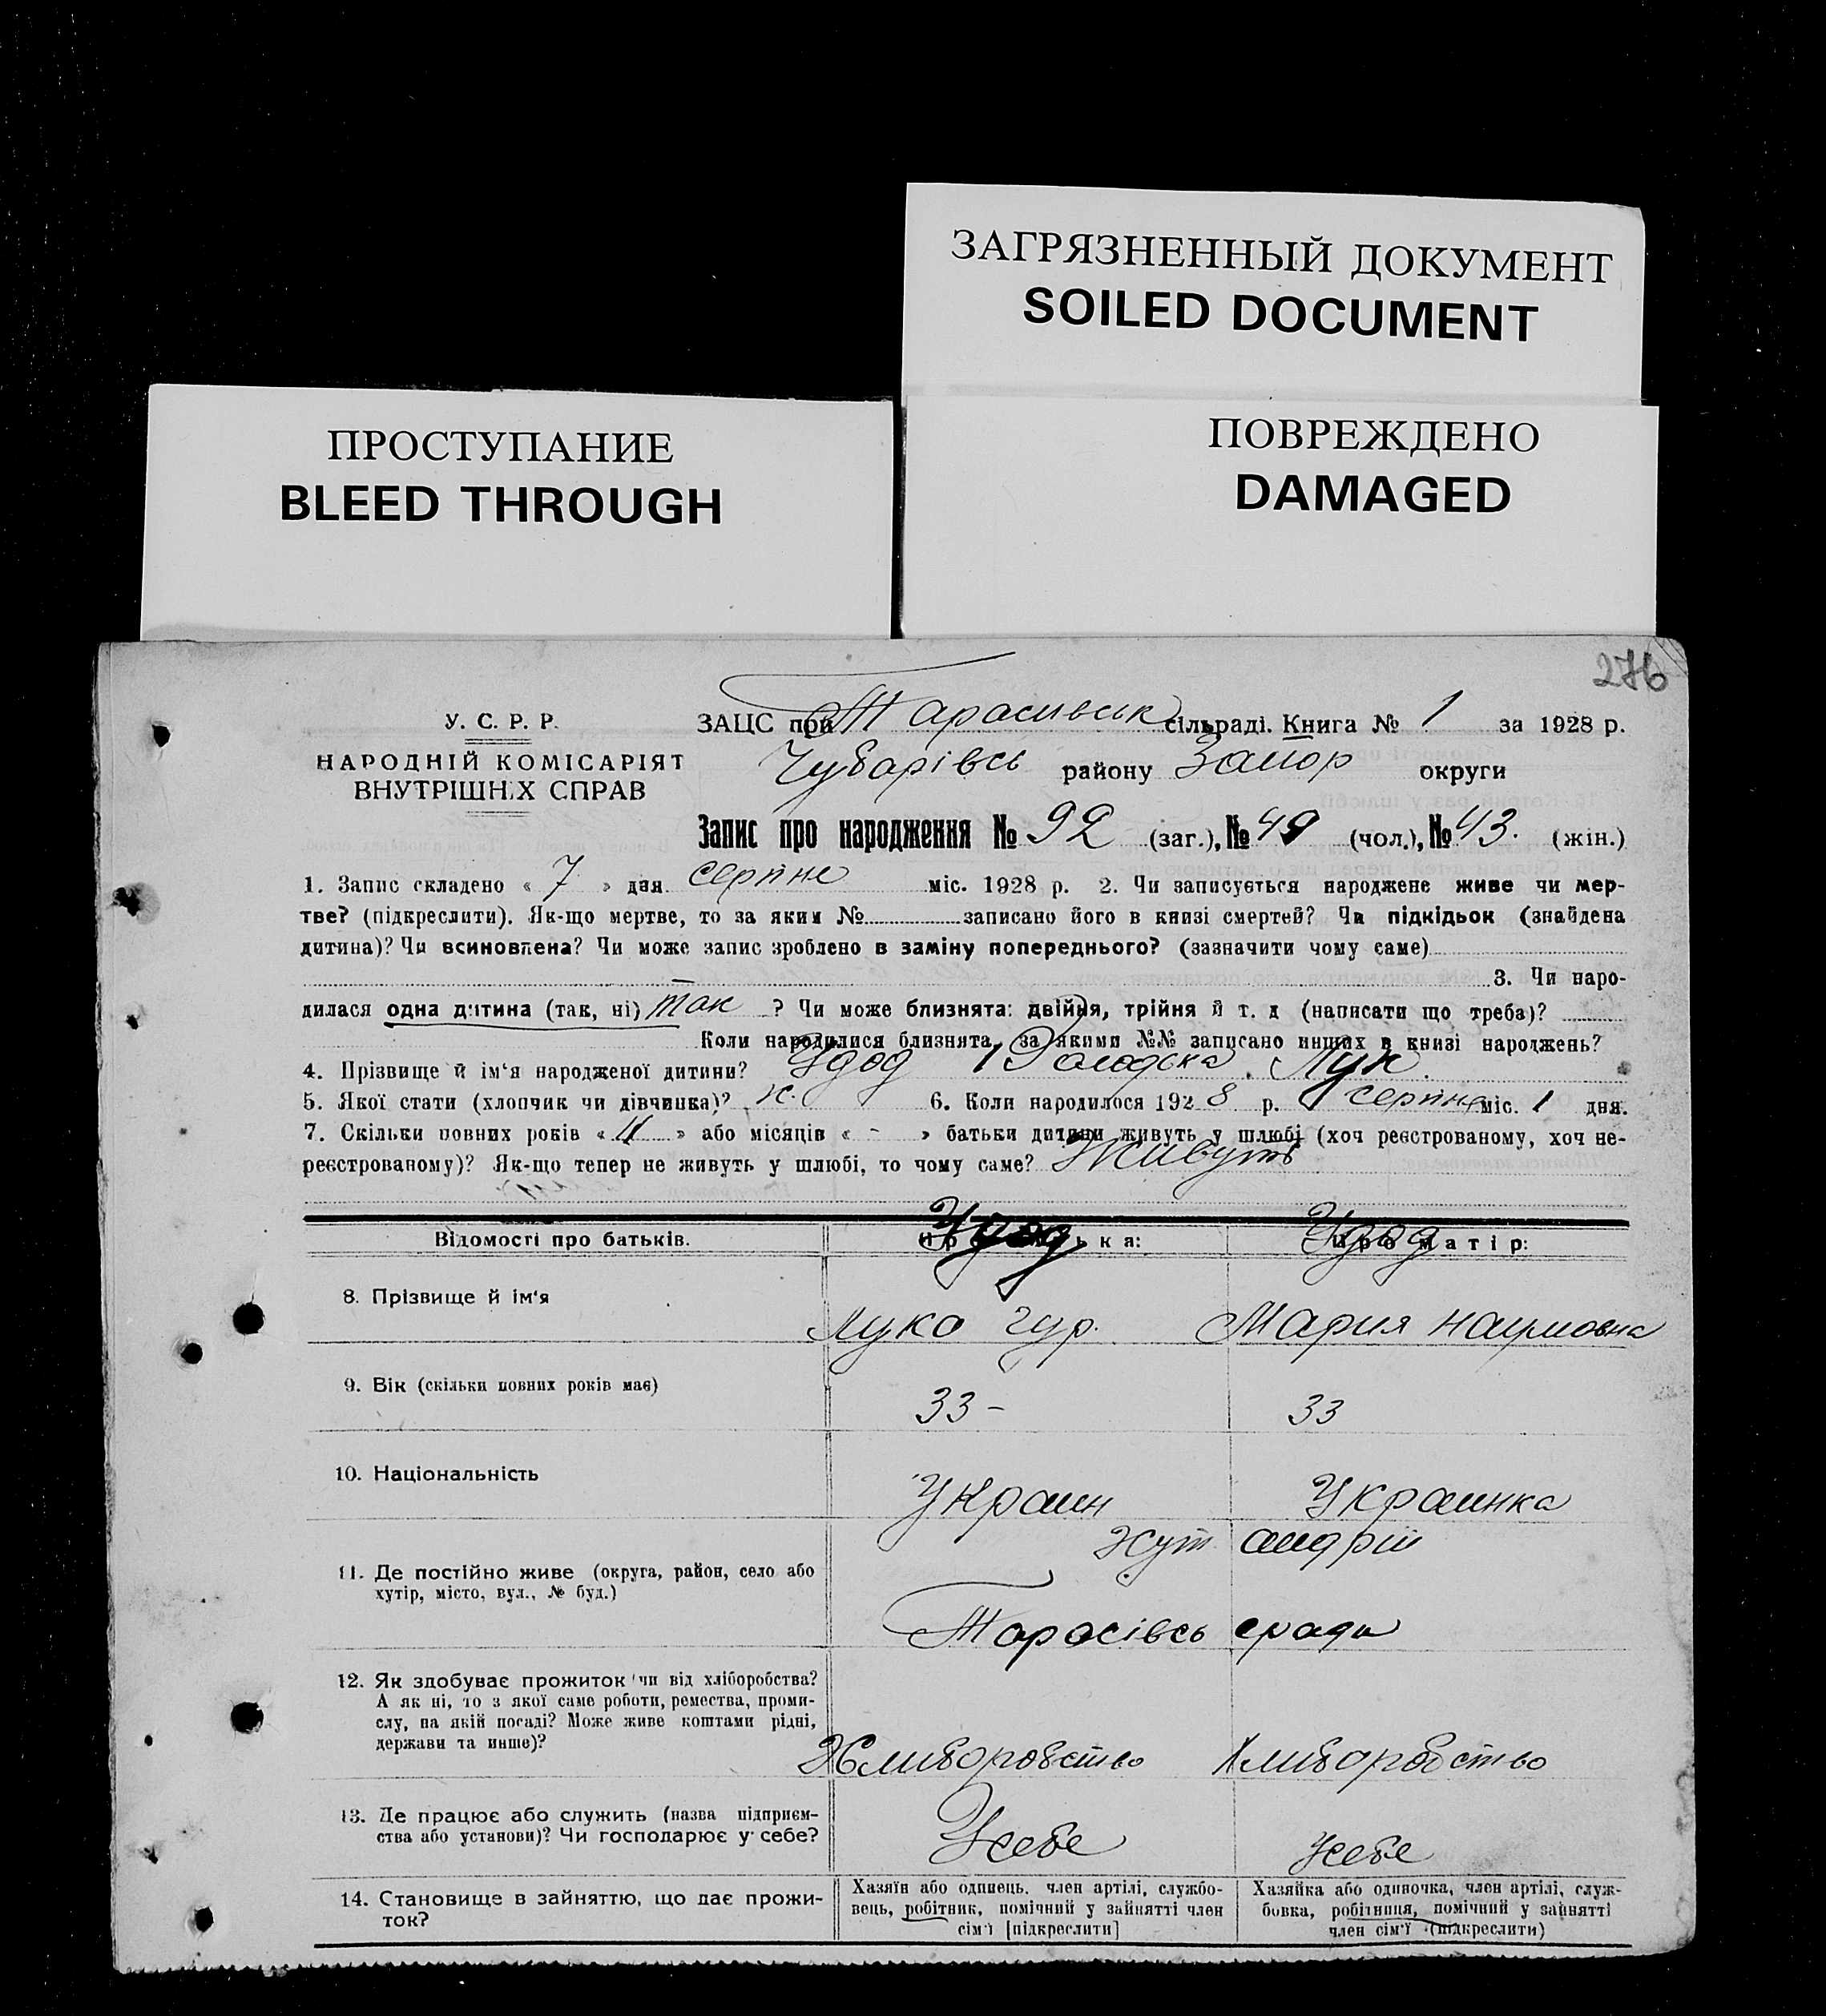 ЗАГРЯЗНЕННЫЙ ДОКУМЕНТ
SOILED DOCUMENT
ПРОСТУПАНИЕ
BLEED THROUGH
ПОВРЕЖДЕНО
DAMAGED
276
У. С. Р. Р.
НАРОДНІЙ КОМІСАРІЯТ
ВНУТРІШНІХ СПРАВ
ЗАЦС при Тарасивськ сільраді. Книга № 1 за 1928 р.
Чубарівсь району Запор округи
Запис про народження № 92 (заг.), № 49 (чол.), № 43. (жін.)
1. Запис складено « 7 » дня серпне міс. 1928 р. 2. Чи записується народжене живе чи мер-
тве? (підкреслити). Як-що мертве, то за яким № записано його в книзі смертей? Чи підкідьок (знайдена
дитина)? Чи всиновлена? Чи може запис зроблено в заміну попереднього? (зазначити чому саме)
3. Чи наро-
дилася одна дитина (так, ні) так ? Чи може близнята: двійня, трійня й т. д (написати що треба)?
Коли народилися близнята, за якими №№ записано инших в книзі народжень?
4. Прізвище й ім'я народженої дитини? Удод Лук.
5. Якої стати (хлопчик чи дівчинка)? ж. 6. Коли народилося 192 8 р. серпне міс. 1 дня.
7. Скільки повних років « 11 » або місяців « - » батьки дитини живуть у шлюбі (хоч реєстрованому, хоч не-
реєстрованому)? Як-що тепер не живуть у шлюбі, то чому саме? Живуть
Відомості про батьків. Про батька: Про матір:
Удод Удод
8. Прізвище й ім'я
Лука гур. Мария наумовна
9. Вік (скільки повних років має)
33 - 33
10. Національність
Украин Украинка
Хут андрій
11. Де постійно живе (округа, район, село або
хутір, місто, вул., № буд.)
Тарасівсь сради
12. Як здобуває прожиток чи від хліборобства?
А як ні, то з якої саме роботи, ремества, проми-
слу, на якій посаді? Може живе коштами рідні,
держави та инше)?
Хлиборобство Хлиборобство
13. Де працює або служить (назва підприєм-
ства або установи)? Чи господарює у себе?
Усебе Усебе
14. Становище в зайняттю, що дає прожи-
ток?
Хазяїн або одинець, член артілі, службо-
вець, робітник, помічний у зайнятті член
сім'ї [підкреслити]
Хазяйка або одиночка, член артілі, служ-
бовка, робітниця, помічний у зайнятті
член сім'ї (підкреслити)